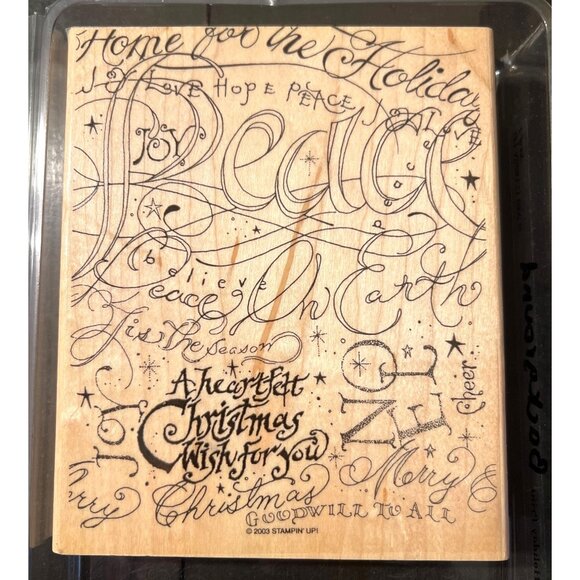 Home for the Holidays
Joy Love Hope Peace Joy
Joy
Peace
peace
believe
Peace On Earth
'Tis the Season
NOEL
cheer
A heartfelt
Christmas
Wish for you
Joy
Merry
Merry
Christmas
GOODWILL TO ALL
© 2003 STAMPIN' UP!
Background